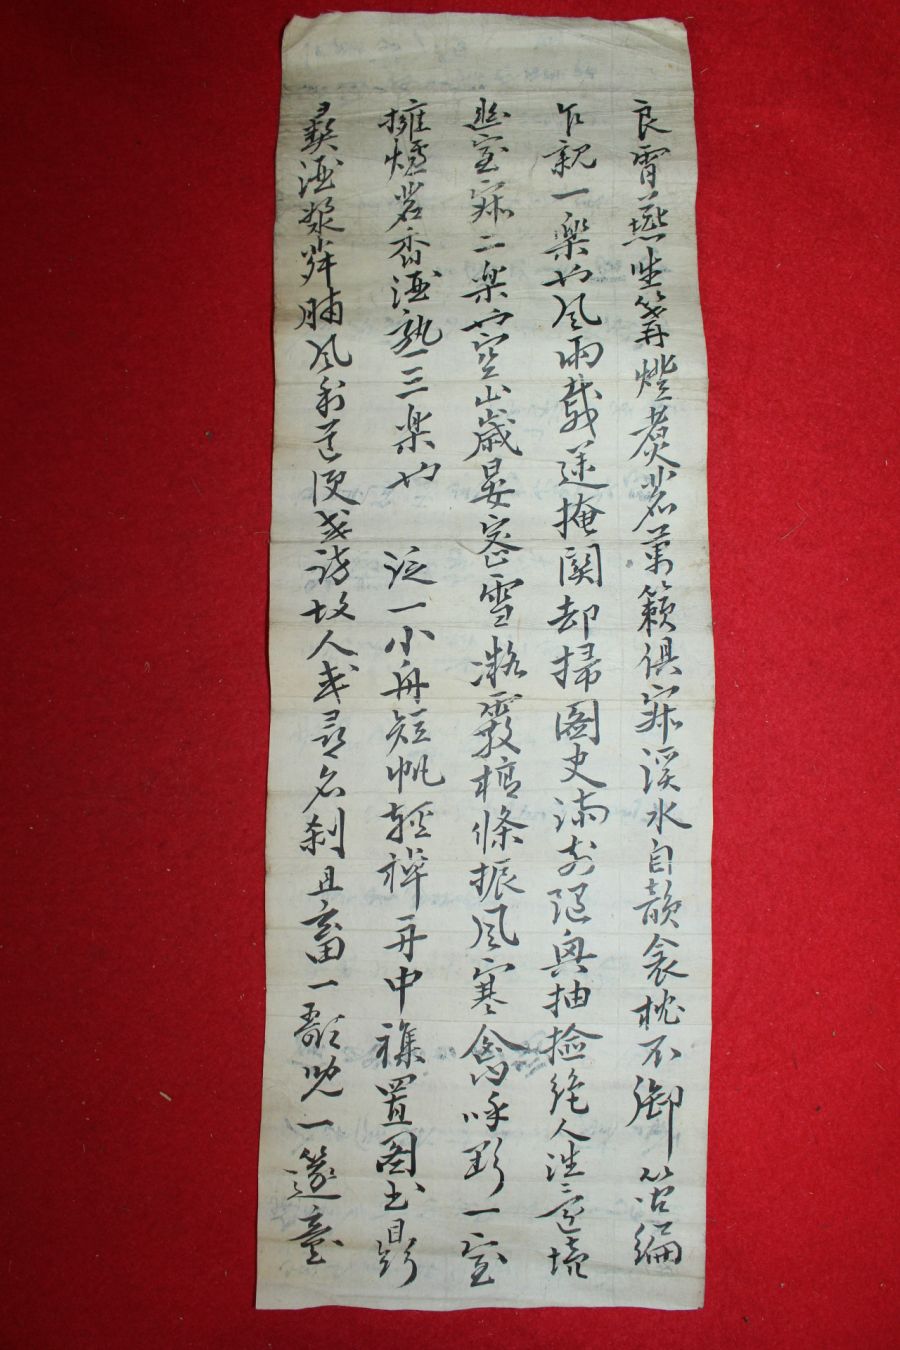 良宵燕坐篝燈煮茗萬籟俱寂溪水自韻衾枕不御簡編
乍親一楽也風雨載途掩関却掃圖史滿前隨興抽撿絶人往還境
幽室寂二楽也空山歲晏密雪凝霰枯條振風寒禽呼野一室
擁爐茗香酒熟三楽也 泛一小舟短帆輕棹舟中雜置圖書鼎
彝酒漿荈脯風利道便或訪故人或尋名刹且畜一歌兒一篴童